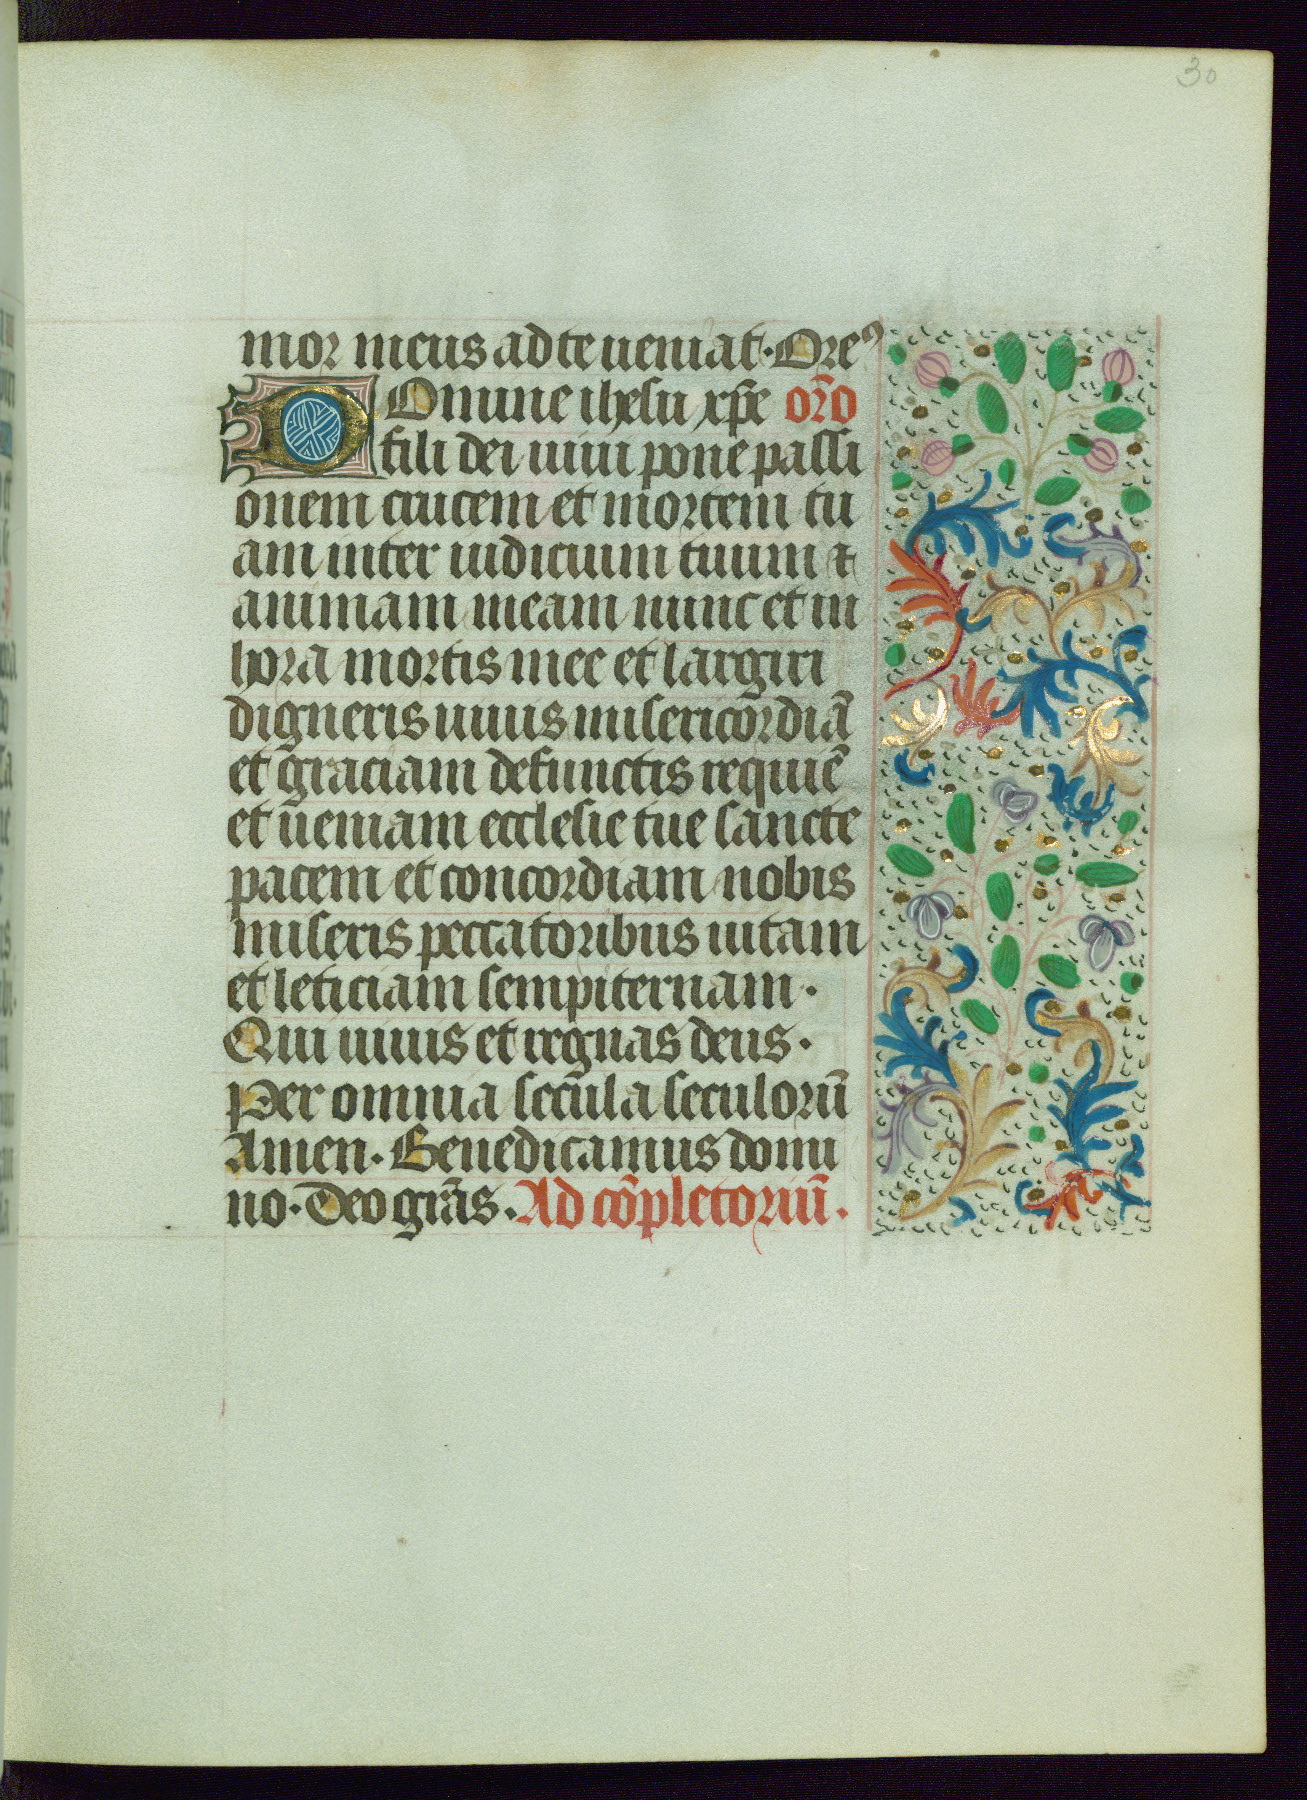 30
mor meus ad te ueniat. Ore⁹
DOmine ihesu xp̄e or̄o
fili dei uiui pone passi
onem crucem et mortem tu
am inter iudicium tuum ⁊
animam meam nunc et in
hora mortis mee et largiri
digneris uiuis misericordiā
et graciam defunctis requiē
et ueniam ecclesie tue sancte
pacem et concordiam nobis
miseris peccatoribus uitam
et leticiam sempiternam.
Qui uiuis et regnas deus.
Per omnia secula seculorū
Amen. Benedicamus domi
no. Deo gr̄as. Ad cōpletoriū.